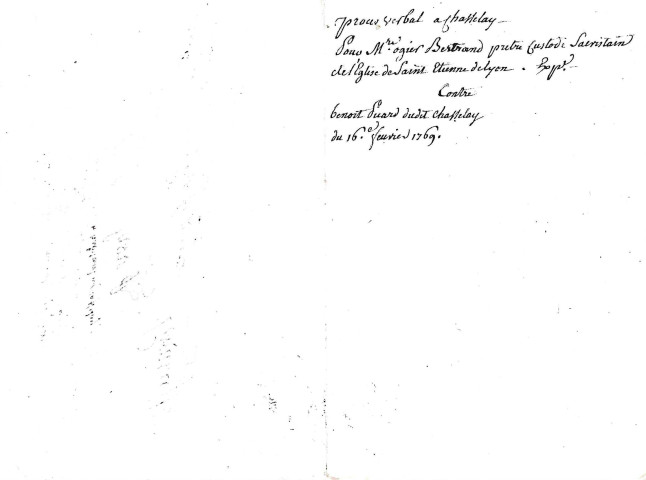 proces verbal a chasselay
Pour Mre. ogier Bertrand pretre Custode Sacristain
de l'Eglise de Saint Etienne de lyon. Expt.
Contre
benoit Suard dudit chasselay
du 16e. fevrier 1769.